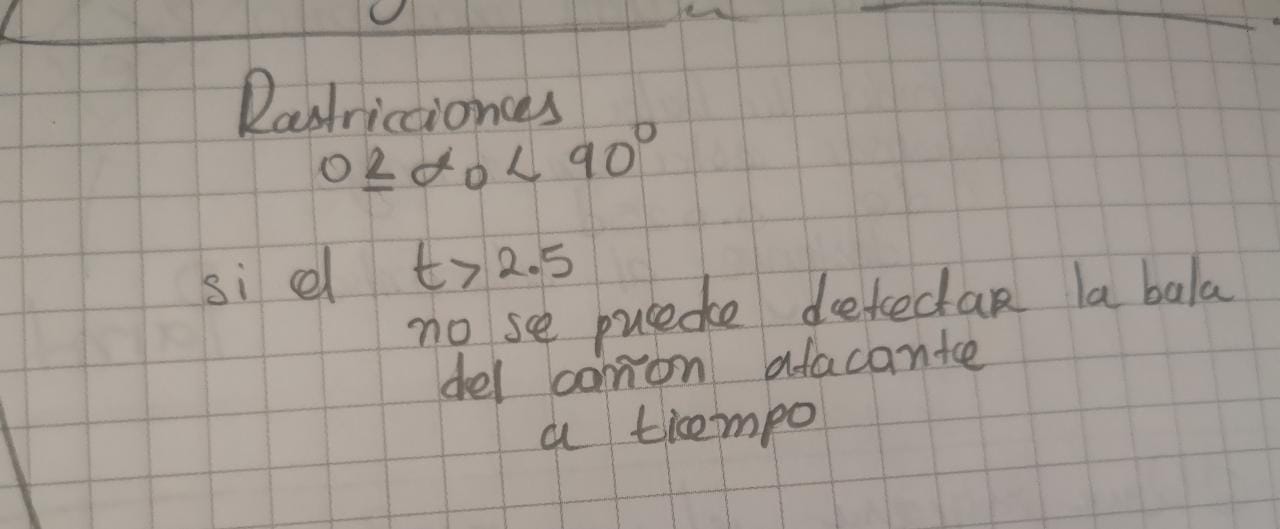 Restricciones
0 ≤ α₀ < 90°
si el t > 2.5
no se puede detectar la bala
del cañon atacante
a tiempo